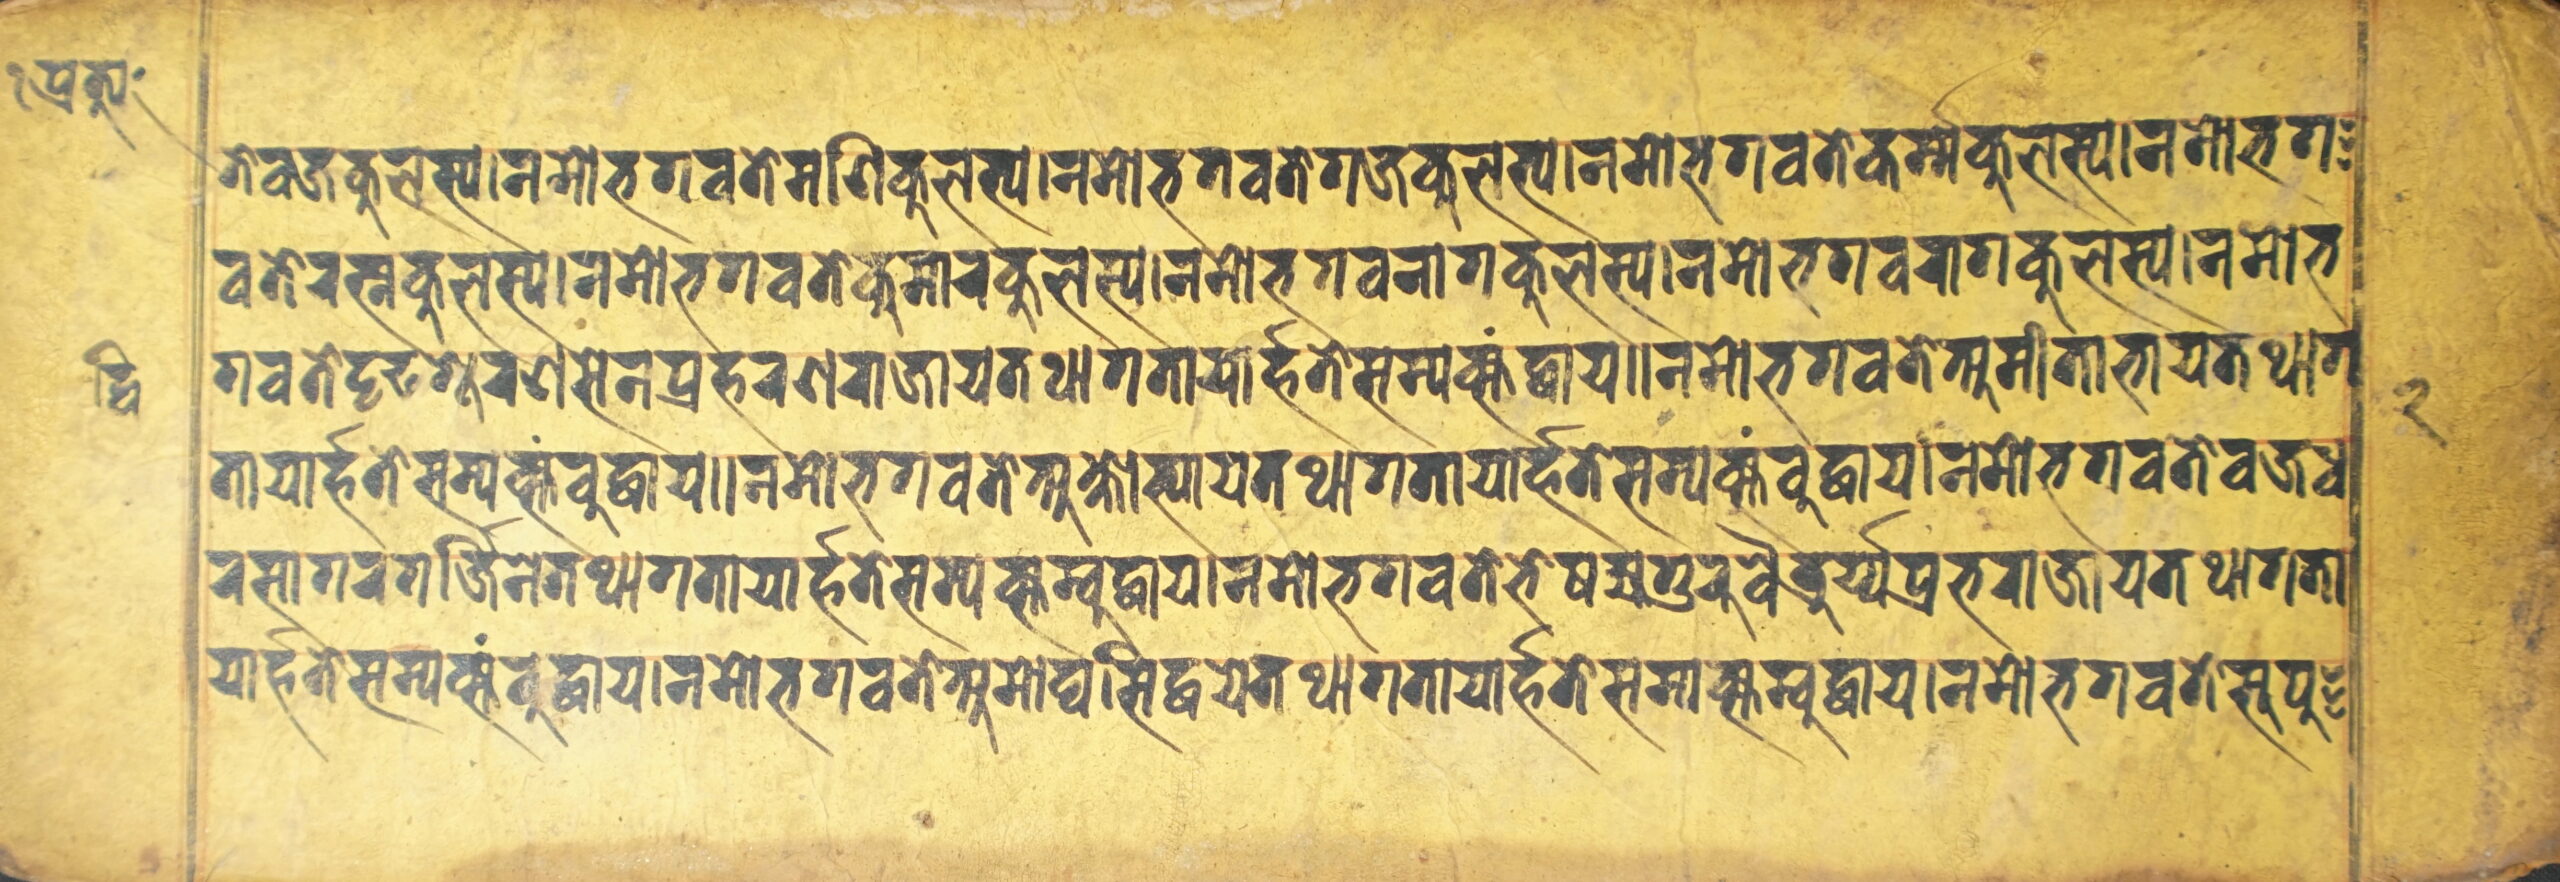 प्रत्यु
तेवज्रकुलस्य।नमोभगवतेमणिकुलस्य।नमोभगवतेगजकुलस्य।नमोभगवतेकर्म्मकुलस्य।नमोभग
वतेरत्नकुलस्य।नमोभगवतेकुमारकुलस्य।नमोभगवनागकुलस्य।नमोभगवरागकुलस्य।नमोभ
द्वि गवतेदृढशूरणसेनप्रहरणराजायतथागतायार्हतेसम्यक्संद्धाय॥नमोभगवतेअमीताभायतथाग २
तायार्हतेसम्यक्संबुद्धाय॥नमोभगवतेअक्षोभ्यायतथागतायार्हतेसम्यक्संबुद्धाय।नमोभगवतेवज्रध
रसागरगर्ज्जिनेतथागतायार्हतेसम्यक्सम्बुद्धाय।नमोभगवतेभैषज्यगुरुवैडुर्य्यप्रभराजायतथागता
यार्हतेसम्यक्संबुद्धाय।नमोभगवतेअमोघसिद्धयेतथागतायार्हतेसम्यक्सम्बुद्धाय।नमोभगवतेसुपु